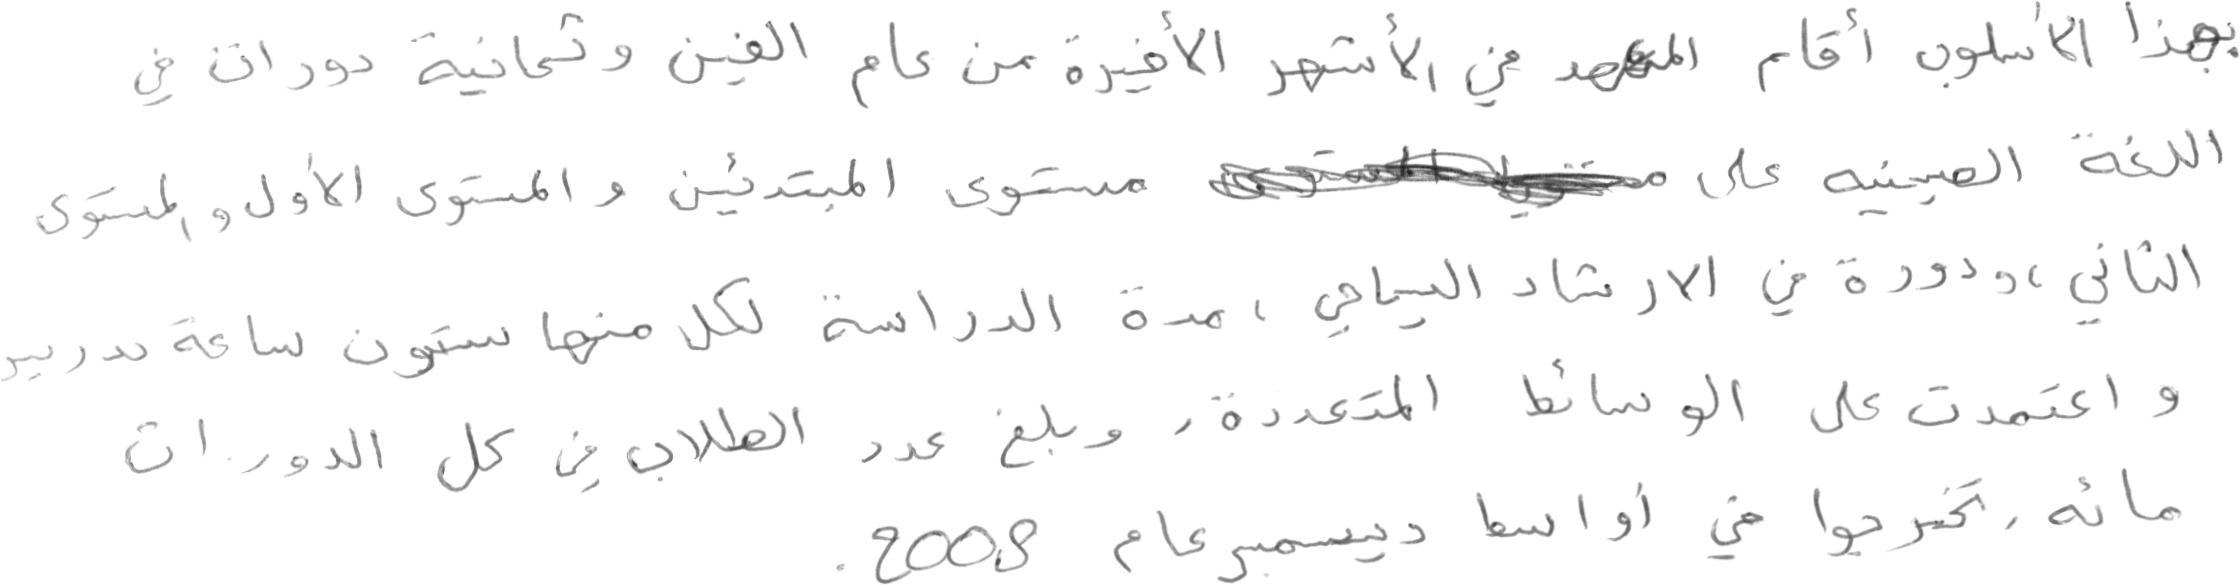 بهذا الأسلوب أقام المعهد في الأشهر الأخيرة من عام الفين وثمانية دورات في
اللغة الصينيه على مستوى المبتدئين والمستوى الأول والمستوى
الثاني، ودورة في الارشاد السياحي، مدة الدراسة لكل منها ستون ساعة تدريب
واعتمدت على الوسائط المتعددة، وبلغ عدد الطلاب في كل الدورات
مائه، تخرجوا في أواسط ديسمبر عام 2008.